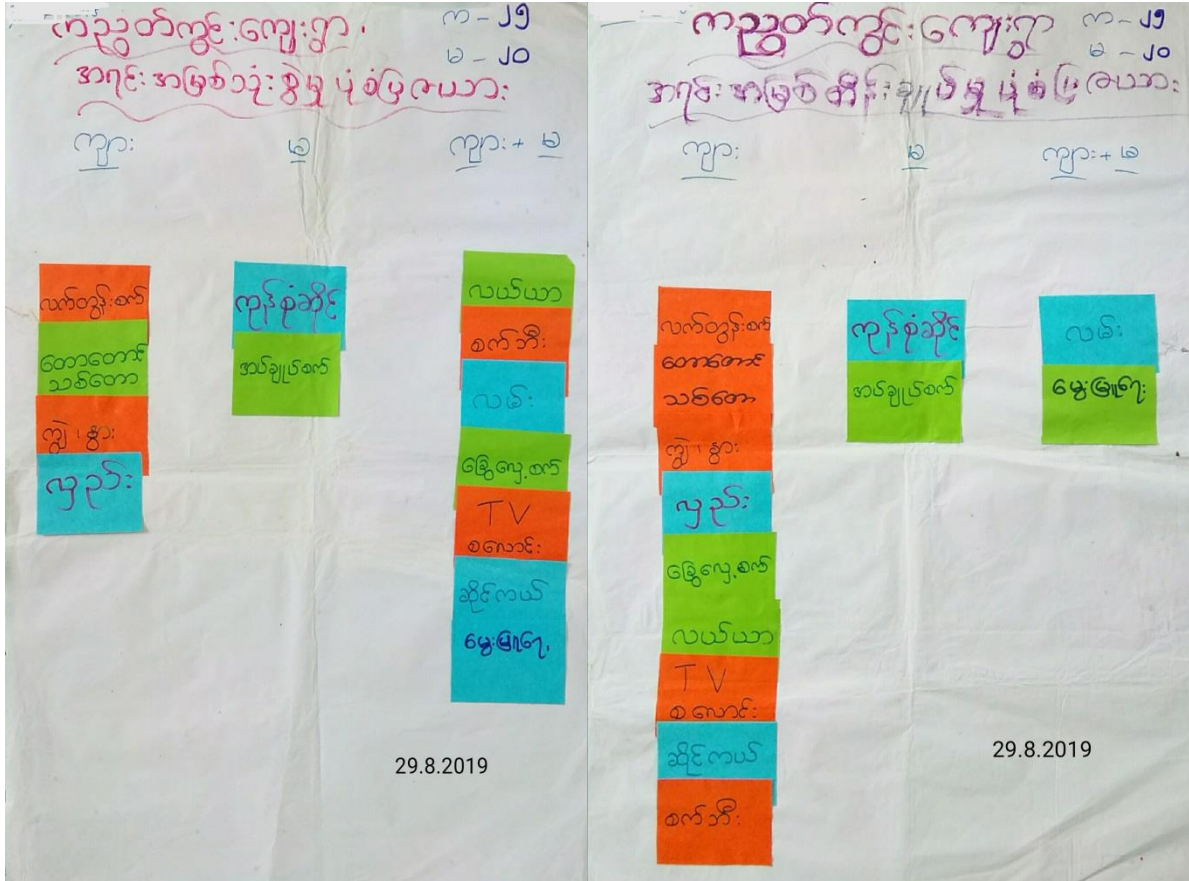 ကညွတ်ကွင်းကျေးရွာ
က - ၂၅
မ - ၂၀
အရင်းအမြစ်သုံးစွဲမှုပုံစံပြဇယား
ကျား
မ
ကျား + မ
လက်တွန်းစက်
တောတောင်
သစ်တော
ကျွဲ၊နွား
လှည်း
ကုန်စုံဆိုင်
အပ်ချုပ်စက်
လယ်ယာ
စက်ဘီး
လမ်း
ခြွေလှေ့စက်
TV
စလောင်း
ဆိုင်ကယ်
မွေးမြူရေး
29.8.2019
ကညွတ်ကွင်းကျေးရွာ
က - ၂၅
မ - ၂၀
အရင်းအမြစ်ထိန်းချုပ်မှုပုံစံပြဇယား
ကျား
မ
ကျား + မ
လက်တွန်းစက်
တောတောင်
သစ်တော
ကျွဲ၊နွား
လှည်း
ခြွေလှေ့စက်
လယ်ယာ
TV
စလောင်း
ဆိုင်ကယ်
စက်ဘီး
ကုန်စုံဆိုင်
အပ်ချုပ်စက်
လမ်း
မွေးမြူရေး
29.8.2019